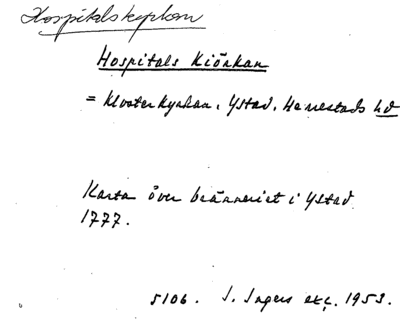 Hospitalskyrkan
Hospitals Kiörkan
= Klosterkyrkan, Ystad, Herrestads hd
Karta över bränneriet i Ystad
1777.
5106. I. Ingers exc. 1953.